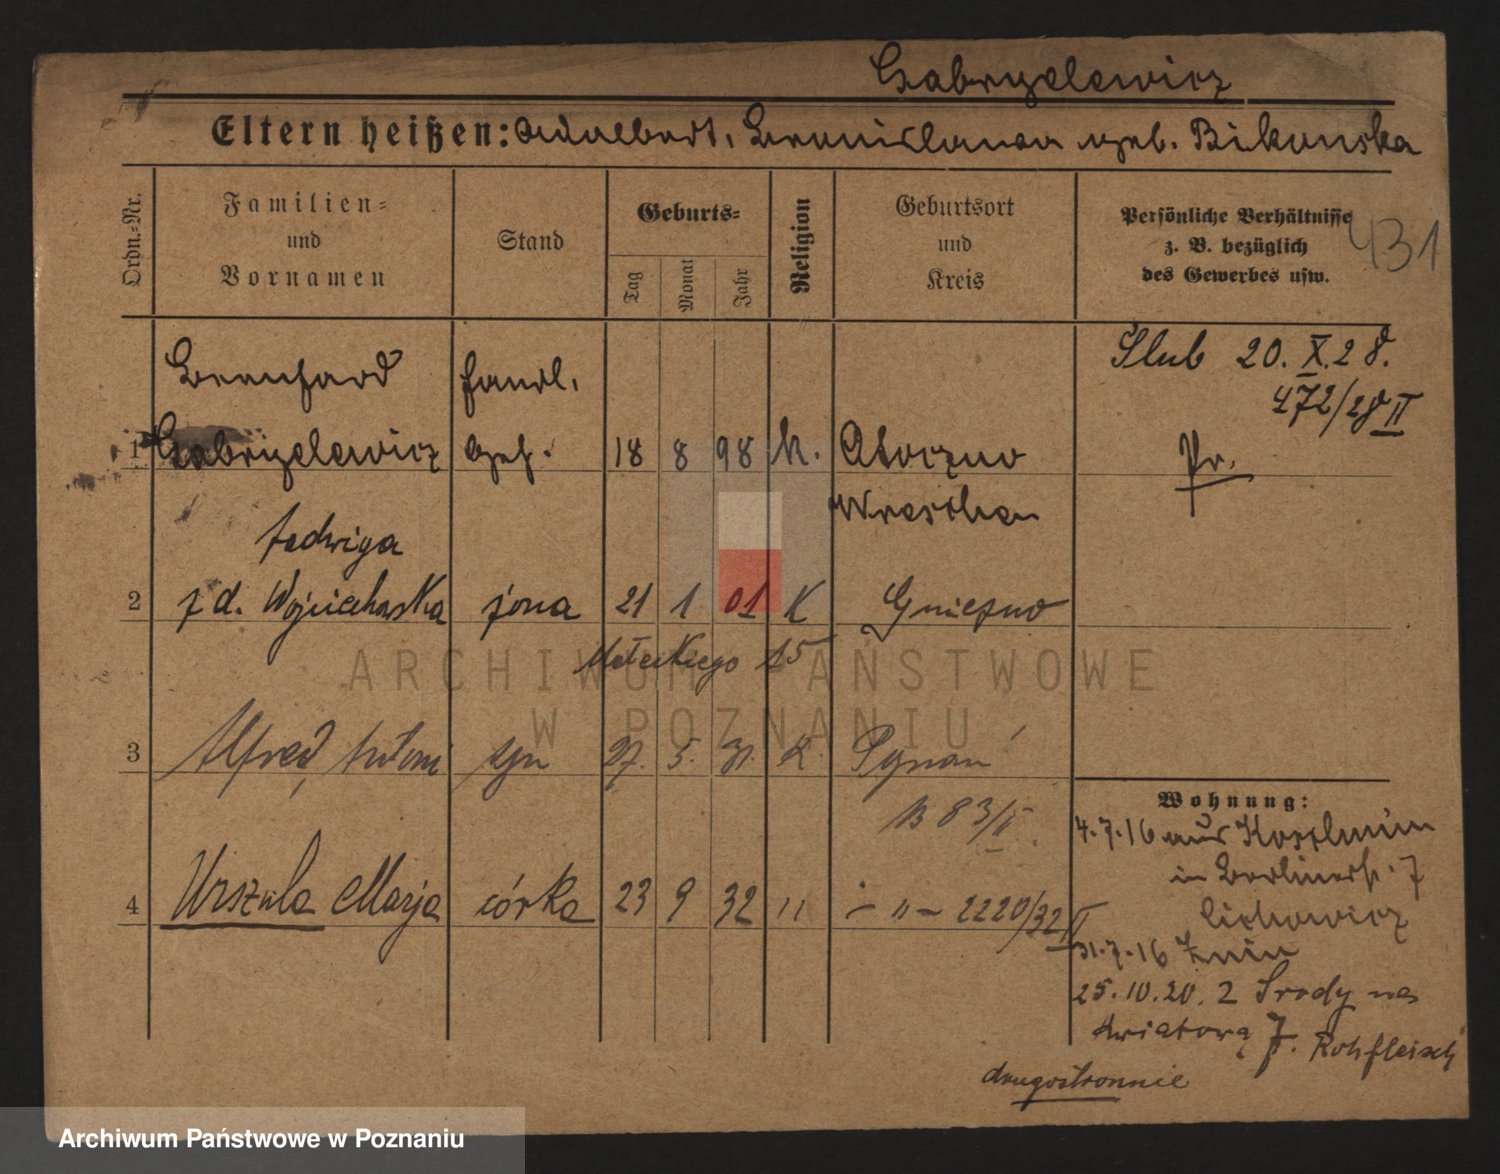 Gabryelewicz
Eltern heißen: Adalbert, Bronislawa geb. Bikowska
Ordn.-Nr.
Familien-
und
Vornamen
Stand
Geburts-
Tag
Monat
Jahr
Religion
Geburtsort
und
Kreis
Persönliche Verhältnisse
z. B. bezüglich
des Gewerbes usw.
431
Bernhard Handl.
1 Gabryelewicz Geh. 18 8 98 K. Otoczno
Wreschen
Ślub 20.X.28.
472/28 II
Pr.
Jadwiga
2 z d. Wojciechowska żona 21 1 01 K Gniezno
Małeckiego 15
3 Alfred, Antoni syn 27. 5. 31. K. Poznań
B 83/II
4 Urszula Marja córka 23 9 32 " - " - 2220/32 II
Wohnung:
4.7.16 aus Koschmin
in Berlinerstr. 7
Cichowicz
31.7.16 Znin
25.10.20. z Środy na
Kwiatową 7. Rohfleisch
drugostronnie
ARCHIWUM PAŃSTWOWE
W POZNANIU
Archiwum Państwowe w Poznaniu